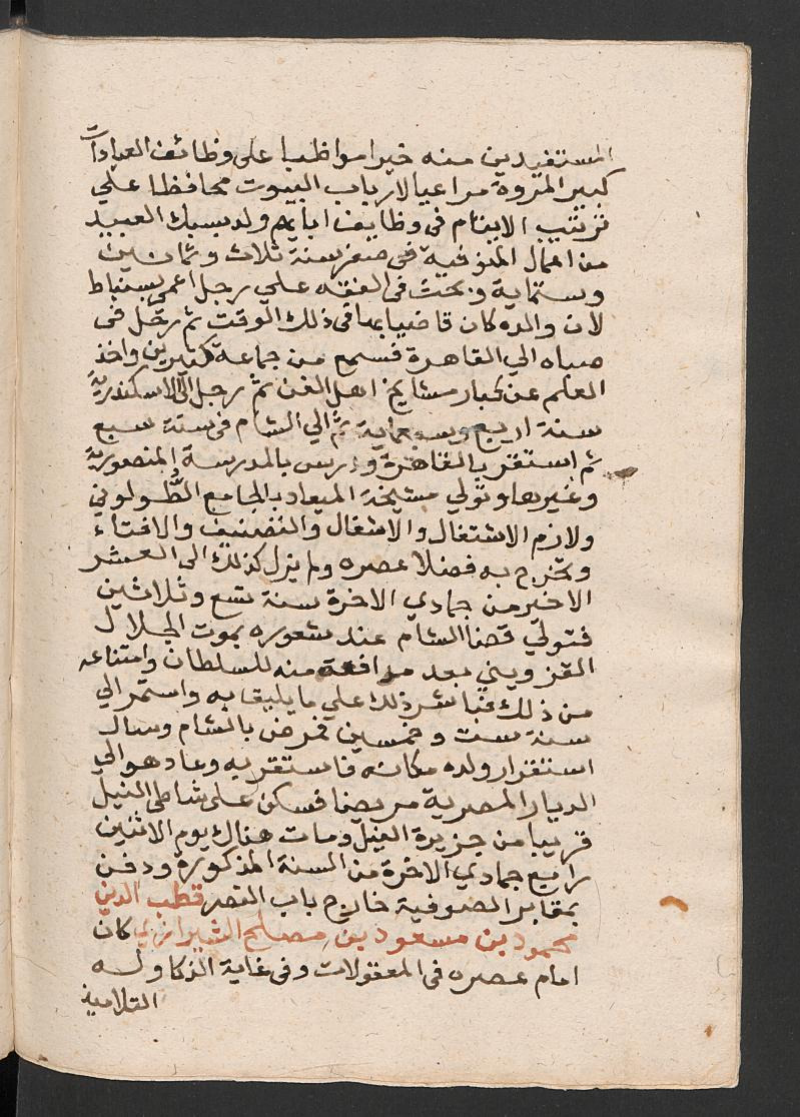 المستفيدين منه خيرا مواظبا على وظائف العبادات
كبير المروة مراعيا لارباب البيوت محافظا علي
ترتيب الايتام فى وظايف ابايهم ولد بسبك العبيد
من اعمال المنوفية فى صفر سنة ثلاث وثمانين
وستماية وبحث فى الفقه علي رجل اعمى بسنباط
لان والده كان قاضيا بها فى ذلك الوقت ثم رحل فى
صباه الي القاهرة فسمع من جماعة كثيرين واخذ
العلم عن كبار مشايخ اهل الفن ثم رحل الى الاسكندرية
سنة اربع وسبعماية ثم الي الشام فى سنة سبع
ثم استقر بالقاهرة ودرس بالمدرسة المنصورية
وغيرها وتولي مشيخة الميعاد بالجامع الطولونى
ولازم الاشتغال والاشغال والتصنيف والافتاء
وتخرج به فضلا عصره ولم يزل كذلك الى العشر
الاخير من جمادي الاخرة سنة تسع وثلاثين
فتولي قضا الشام عند شعوره بموت الجلال
القزويني بعد مرافعة منه للسلطان وامتناعه
من ذلك فباشر ذلك علي ما يليق به واستمر الي
سنة ست وخمسين فمرض بالشام وسال
استقرار ولده مكانه فاستقر به وعاد هو الي
الديار المصرية مريضا فسكن على شاطى النيل
قريبا من جزيرة الفيل ومات هناك يوم الاثنين
رابع جمادي الاخرة من السنة المذكورة ودفن
بمقابر الصوفية خارج باب النصر قطب الدين
محمود بن مسعود بن مصلح الشيرازي كان
امام عصره فى المعقولات وفى غاية الذكا وله
التلاميذ